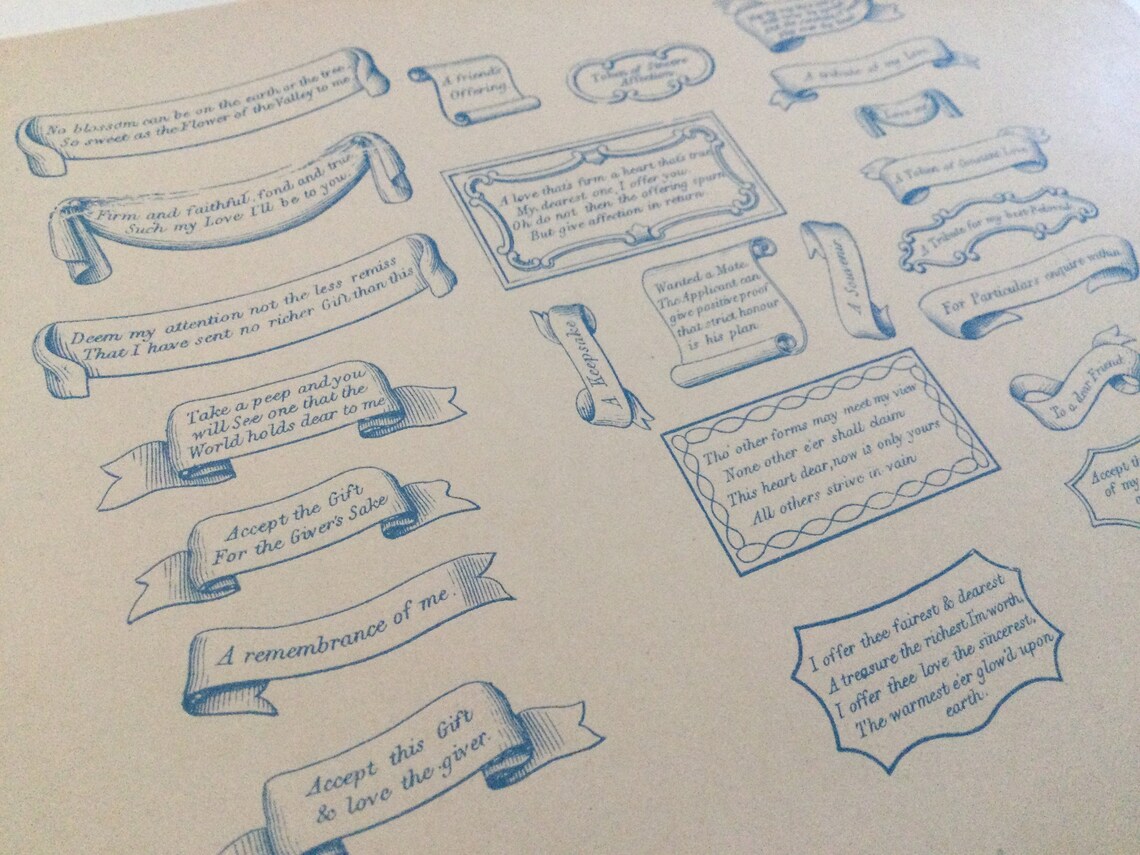 No blossom can be on the earth or the tree
So sweet as the Flower of the Valley to me.
Firm and faithful, fond and true
Such my Love I'll be to you.
Deem my attention not the less remiss
That I have sent no richer Gift than this
Take a peep and you
will See one that the
World holds dear to me
Accept the Gift
For the Giver's Sake
A remembrance of me.
Accept this Gift
& love the giver.
A friend's
Offering
Token of Sincere
Affection
A love that's firm a heart that's true
My dearest one, I offer you
Oh do not then the offering spurn
But give affection in return
Wanted a Mate.
The Applicant can
give positive proof
that strict honour
is his plan
A Keepsake
Tho' other forms may meet my view
None other e'er shall claim
This heart dear, now is only yours
All others strive in vain
I offer thee fairest & dearest
A treasure the richest I'm worth,
I offer thee love the sincerest,
The warmest e'er glow'd upon
earth.
A tribute of my Love
Love me
A Token of Constant Love
A Tribute for my best Beloved
For Particulars enquire within
To a dear Friend
Accept
of my